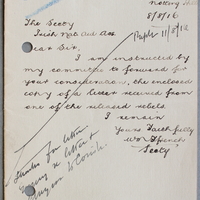 Notting Hill
8/8/16
The Secty
Irish Nat Aid Ass
Repld 11/8/16
Dear Sir,
I am instructed by
my committee to forward for
your consideration, the enclosed
copy of a letter received from
one of the released rebels.
I remain
Yours Faithfully
Wm
Secty
Thanks for letter